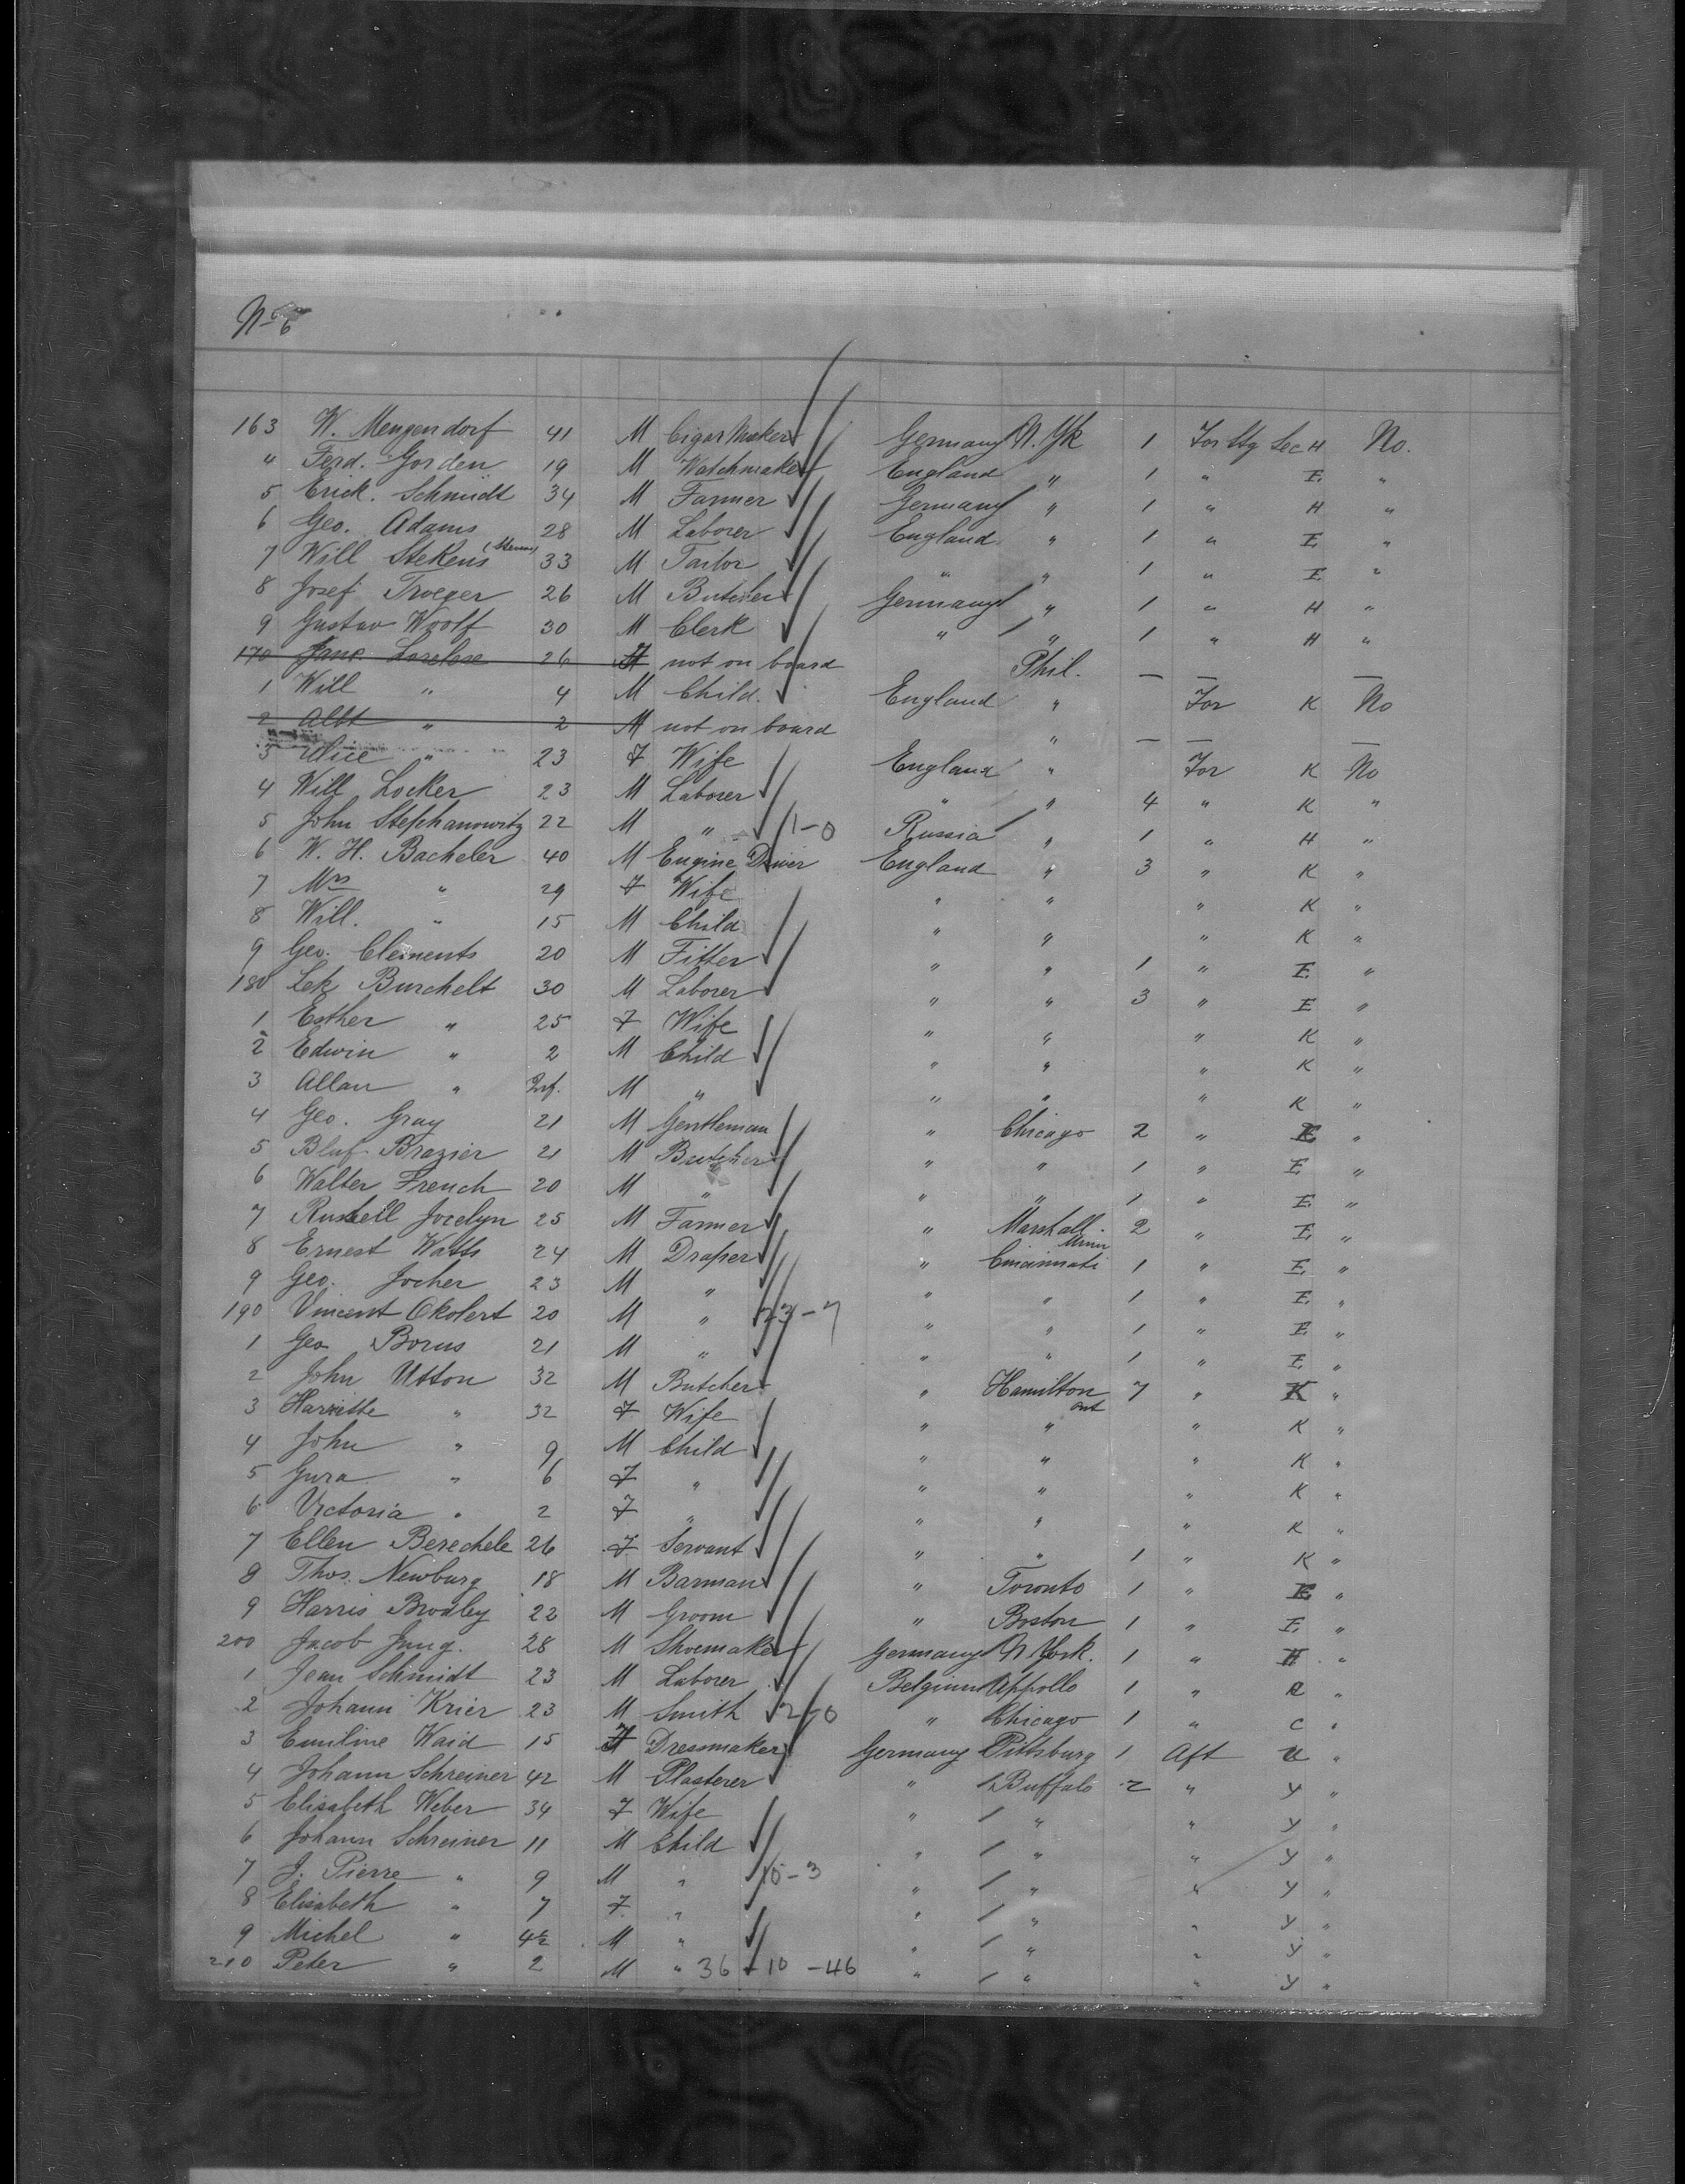 No 6
163 W. Mengendorf 41 M Cigar Maker Germany N. Yk 1 For Stg Sec H No.
4 Ferd. Gorden 19 M Watchmaker England " 1 " E "
5 Erick. Schmidt 34 M Farmer Germany " 1 " H "
6 Geo. Adams 28 M Laborer England " 1 " E "
7 Will Stekens 33 M Tailor " " 1 " E "
8 Josef Troeger 26 M Butcher Germany " 1 " H "
9 Gustav Woolf 30 M Clerk " " 1 " H "
170 Jane Lovelese 26 not on board Phil. — — —
1 Will " 4 M Child. England " For K No
2 Albt " 2 M not on board " — — —
3 Alice " 23 F Wife England " For K No
4 Will Locker 23 M Laborer " " 4 " K "
5 John Stephanowitz 22 M " 1-0 Russia " 1 " H "
6 W. H. Bacheler 40 M Engine Driver England " 3 " K "
7 Mrs " 29 F Wife " " " K "
8 Will. " 15 M Child " " " K "
9 Geo. Clements 20 M Fitter " " 1 " E "
180 Burchelt 30 M Laborer " " 3 " E "
1 Esther " 25 F Wife " " " K "
2 Edwin " 2 M Child " " " K "
3 Allan " Inf. M " " " " K "
4 Geo. Gray 21 M Gentleman " Chicago 2 " E "
5 Brazier 21 M Butcher " " 1 " E "
6 Walter French 20 M " " " 1 " E "
7 Russell Jocelyn 25 M Farmer " Marshall. Minn 2 " E "
8 Ernest Watts 24 M Draper " Cincinnati 1 " E "
9 Geo. Jocher 23 M " " " 1 " E "
190 Vincent Okolert 20 M " 23-7 " " 1 " E "
1 Geo Borus 21 M " " " 1 " E "
2 John Utton 32 M Butcher " Hamilton Ont 7 " K "
3 Harritte " 32 F Wife " " " K "
4 John " 9 M Child " " " K "
5 Gura " 6 F " " " " K "
6 Victoria " 2 F " " " " K "
7 Ellen Berechele 26 F Servant " " 1 " K "
8 Thos. Newburg 18 M Barman " Toronto 1 " E "
9 Harris Brodley 22 M Groom " Boston 1 " E "
200 Jacob Jung. 28 M Shoemaker Germany N York. 1 " H "
1 Jean Schmidt 23 M Laborer Belgium Appollo 1 " "
2 Johann Krier 23 M Smith 2-0 " Chicago 1 " C "
3 Emiline Waid 15 F Dressmaker Germany Pittsburg 1 Aft U "
4 Johann Schreiner 42 M Plasterer " Buffalo 2 " Y "
5 Elisabeth Weber 34 F Wife " " " Y "
6 Johann Schreiner 11 M Child " " " Y "
7 J. Pierre " 9 M " 10-3 " " " Y "
8 Elisabeth " 7 F " " " " Y "
9 Michel " 4½ M " " " " Y "
210 Peter " 2 M " 36 10 -46 " " " Y "